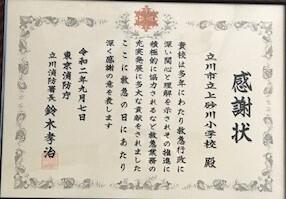 感謝状
立川市立上砂川小学校 殿
貴校は多年にわたり救急行政に
深い関心と理解を示されその推進に
積極的に協力されるなど救急業務の
充実発展に多大な貢献をされました
ここに救急の日にあたり
深く感謝の意を表します
令和二年九月七日
東京消防庁
立川消防署長 鈴木孝治